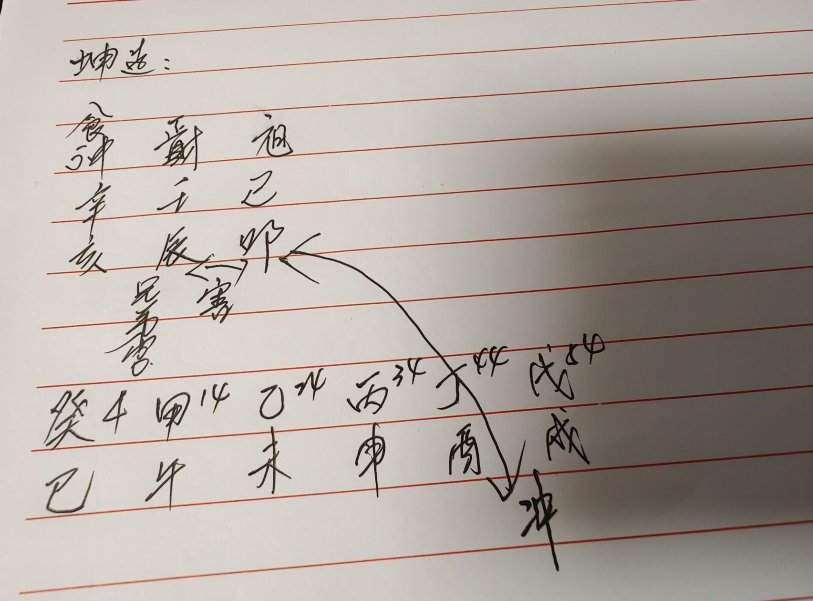 坤造：
食神 正财 祖
辛 壬 己
亥 辰 卯
兄弟宫 害
癸4 甲14 乙24 丙34 丁44 戊54
巳 午 未 申 酉 戌
冲